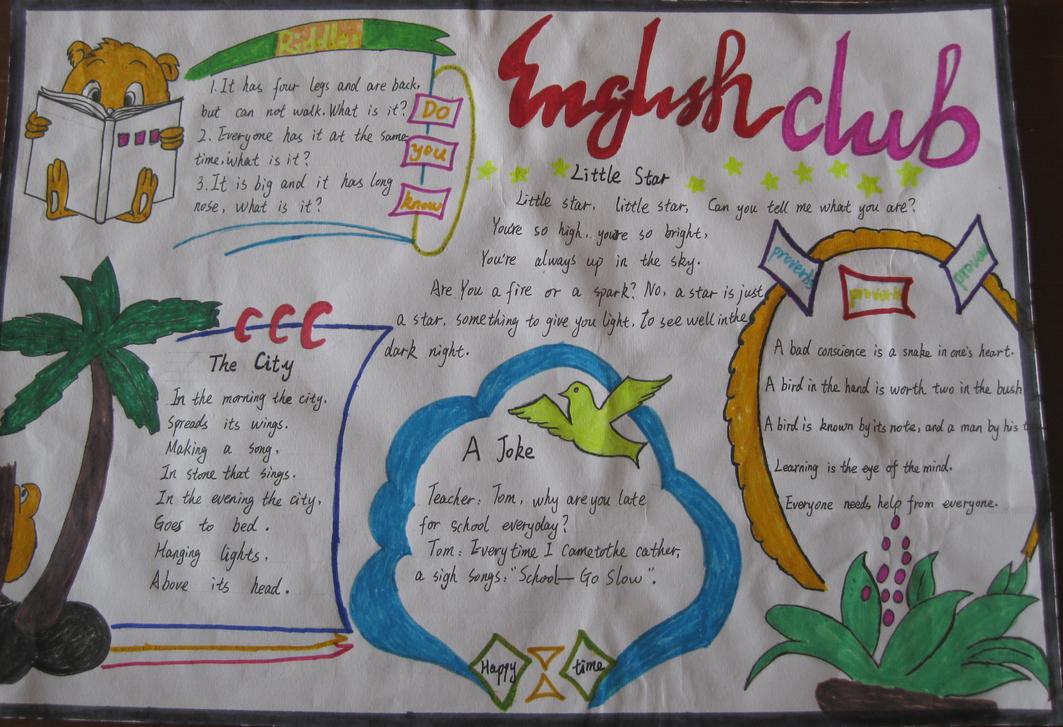 Riddles
1. It has four legs and are back,
but can not walk. What is it?
2. Everyone has it at the same
time, what is it?
3. It is big and it has long
nose, what is it?
Do
you
know
English club
Little Star
Little star, little star, Can you tell me what you are?
You're so high, you're so bright,
You're always up in the sky.
Are You a fire or a spark? No, a star is just
a star, something to give you light, to see well in the
dark night.
CCC
The City
In the morning the city.
Spreads its wings.
Making a song,
In stone that sings.
In the evening the city,
Goes to bed.
Hanging lights.
Above its head.
A Joke
Teacher: Tom, why are you late
for school everyday?
Tom: Every time I came to the cather,
a sigh songs: "School—Go Slow".
Happy time
proverbs
A bad conscience is a snake in one's heart.
A bird in the hand is worth two in the bush
A bird is known by its note, and a man by his
Learning is the eye of the mind.
Everyone needs help from everyone.